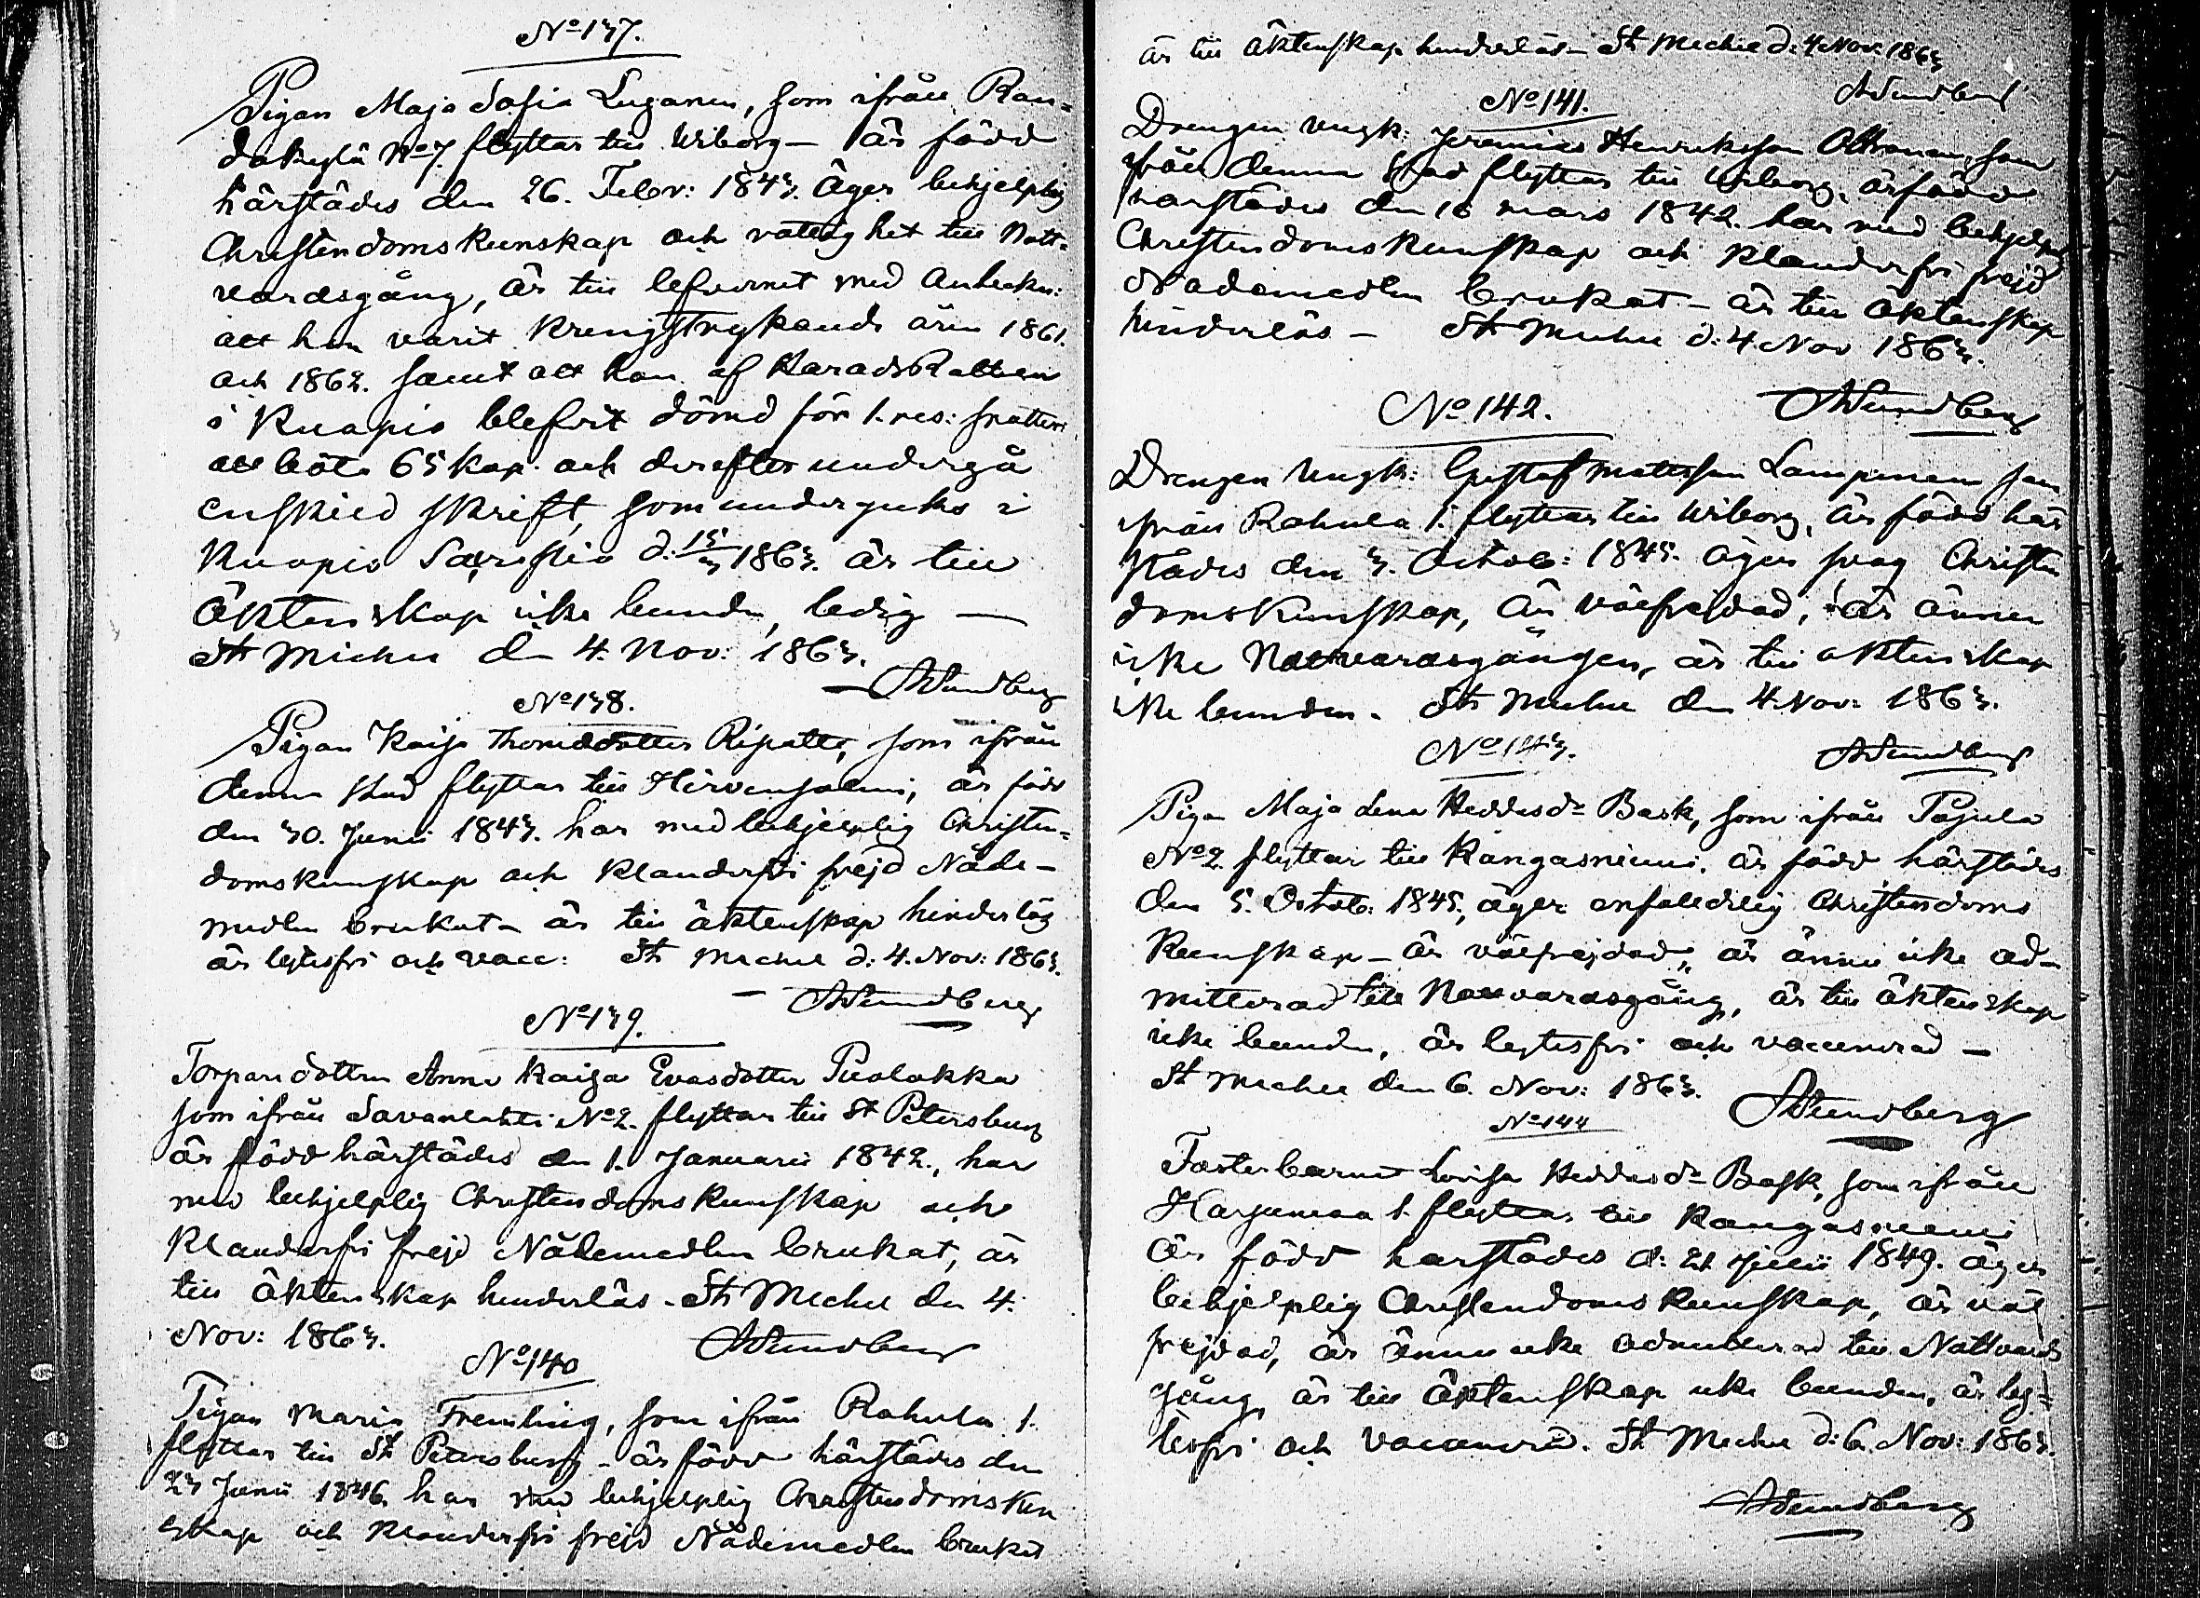 No 137.
Pigan Maja Sofia Luganen, som ifrån Ran-
dakylä No 7. flyttar till Wiborg – är född
härstädes den 26. Febr: 1843. Äger behjelplig
Christendomskunskap och rättighet till Natt-
vardsgång, är till lefvernet med anteckn:
att hon varit kringstrykande åren 1861.
och 1862. samt att hon af HäradsRätten
i Kuopio blifvit dömd för 1. res:
att böta 65 kop. och derefter undergå
enskild skrift, som undergicks i
Kuopio Sacristia d. 15/3 1863. är till
äktenskap icke bunden, ledig –
St Michel den 4. Nov: 1863.
A Sundberg
No 138.
Pigan Kaija Thomasdotter Ripatti, som ifrån
denna stad flyttar till Hirvensalmi, är född
den 30. Junii 1843. har med behjelplig Christen-
domskunskap och klanderfri frejd Nåde-
medlen brukat – är till äktenskap hinderlös
är lytesfri och vacc: St Michel d: 4. Nov: 1863.
– A Sundberg
No 139.
Torparedottren Anna Kaisa Evasdotter Puolakka
som ifrån Savanlahti No 2. flyttar till St Petersburg
är född härstädes den 1. Januarii 1842., har
med behjelplig Christendomskunskap och
klanderfri frejd Nådemedlen brukat, är
till äktenskap hinderlös – St Michel den 4.
Nov: 1863. A Sundberg
No 140
Pigan Maria Fremling, som ifrån Rahula 1.
flyttar till St Petersburg – är född härstädes den
23 Junii 1846. har med behjelplig Christendomskun
skap och klanderfri frejd Nådemedlen brukat
är till äktenskap hinderlös – St Michel d: 4 Nov: 1863
A Sundberg
No 141.
Drengen ungk: Jeremias Henriksson Oltronen, som
ifrån denna stad flyttar till Wiborg, är född
härstädes den 16 mars 1842. har med behjelplig
Christendomskunskap och klanderfri frejd
Nådemedlen brukat – är till äktenskap
hinderlös – St Michel d: 4 Nov 1863.
No 142. A Sundberg
Drengen ungk: Gustaf Mattsson Lampinen som
ifrån Rahula 1. flyttar till Wiborg, är född här
städes den 3. Octob: 1845. äger svag Christen
domskunskap, är välfrejdad, är ännu
icke Nattvardsgången, är till äktenskap
icke bunden. St Michel den 4. Nov: 1863.
No 143. A Sundberg
Pigan Maja Lena Heddasdr Bask, som ifrån Pajula
No 2. flyttar till Kangasniemi. är född härstädes
den 5. Octob: 1845., äger anfalldelig Christendoms
kunskap – är välfrejdad, är ännu icke ad-
mitterad till Nattvardsgång, är till äktenskap
icke bunden, är lytesfri och vaccinerad –
St Michel den 6. Nov: 1863.
A Sundberg
No 144
Fosterbarnet Lovisa Heddasdr Bask, som ifrån
Harjumaa 1. flyttar till Kangasniemi
är född härstädes d: 21 Julii 1849. äger
behjelplig Christendomskunskap, är väl
frejdad, är ännu icke admitterad till Nattvards
gång, är till äktenskap icke bunden, är ly-
tesfri och vaccinerad. St Michel d: 6. Nov: 1863.
A Sundberg